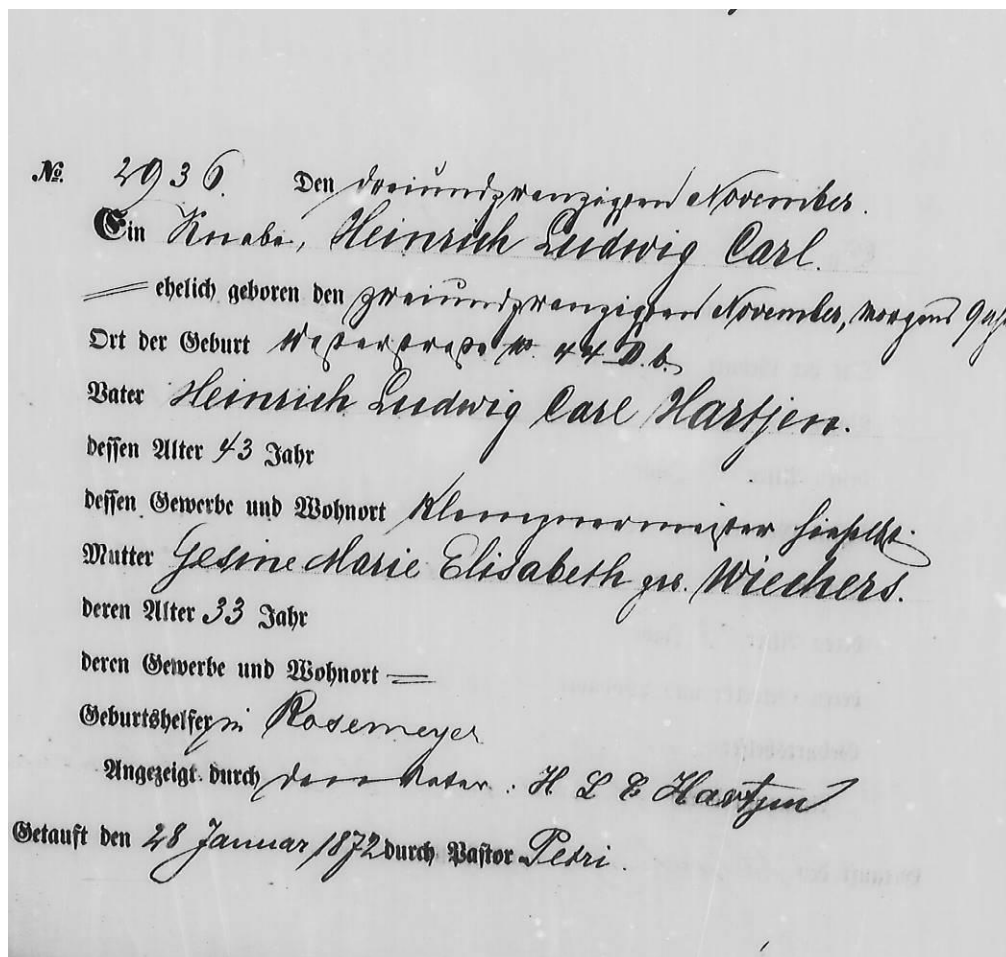 No. 2936. Den dreiundzwanzigsten November.
Ein Knabe, Heinrich Ludwig Carl.
ehelich geboren den zweiundzwanzigsten November, Morgens 9
Ort der Geburt Weserstraße No. 44
Vater Heinrich Ludwig Carl Hartjen.
dessen Alter 43 Jahr
dessen Gewerbe und Wohnort Klempnermeister hieselbst.
Mutter Gesine Marie Elisabeth geb. Wiechers.
deren Alter 33 Jahr
deren Gewerbe und Wohnort
Geburtshelferin Rosemeyer
Angezeigt durch den Vater: H L C Hartjen
Getauft den 28 Januar 1872 durch Pastor Petri.